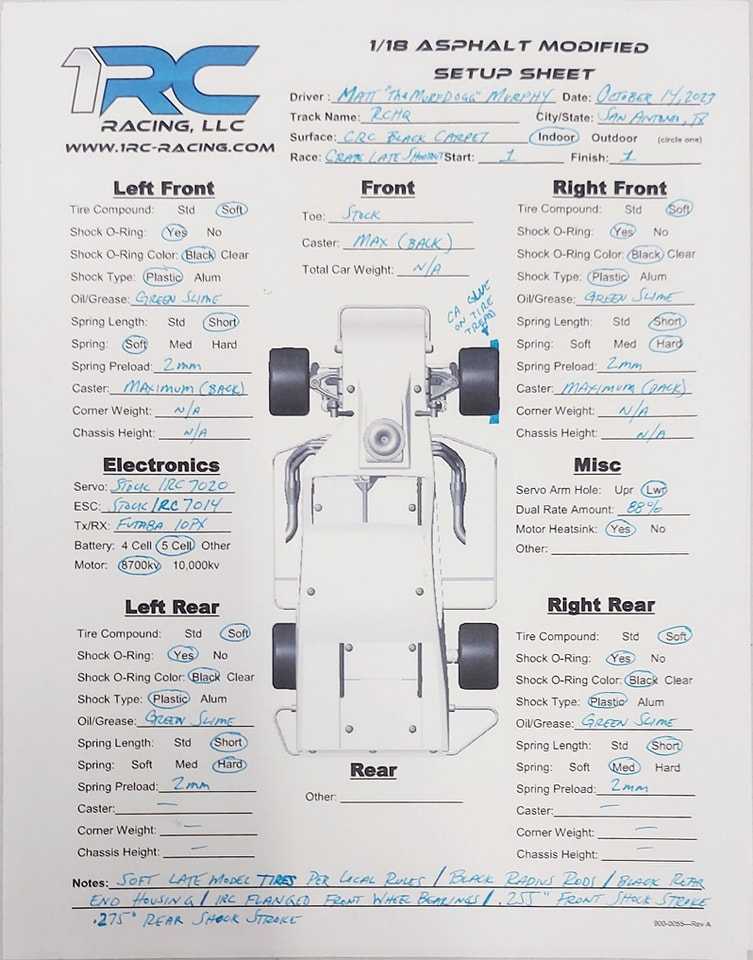 1RC
RACING, LLC
WWW.1RC-RACING.COM
1/18 ASPHALT MODIFIED
SETUP SHEET
Driver : MATT "THE MURDOGG" MURPHY Date: OCTOBER 14, 2023
Track Name: RCHQ City/State: SAN ANTONIO, TX
Surface: CRC BLACK CARPET Indoor Outdoor (circle one)
Race: CRATE LATE SHOOTOUT Start: 1 Finish: 1
Left Front
Tire Compound: Std Soft
Shock O-Ring: Yes No
Shock O-Ring Color: Black Clear
Shock Type: Plastic Alum
Oil/Grease: GREEN SLIME
Spring Length: Std Short
Spring: Soft Med Hard
Spring Preload: 2mm
Caster: MAXIMUM (BACK)
Corner Weight: N/A
Chassis Height: N/A
Front
Toe: STOCK
Caster: MAX (BACK)
Total Car Weight: N/A
CA GLUE
ON TIRE
TREAD
Right Front
Tire Compound: Std Soft
Shock O-Ring: Yes No
Shock O-Ring Color: Black Clear
Shock Type: Plastic Alum
Oil/Grease: GREEN SLIME
Spring Length: Std Short
Spring: Soft Med Hard
Spring Preload: 2mm
Caster: MAXIMUM (BACK)
Corner Weight: N/A
Chassis Height: N/A
Electronics
Servo: STOCK 1RC 7020
ESC: STOCK 1RC 7014
Tx/RX: FUTABA 10PX
Battery: 4 Cell 5 Cell Other
Motor: 8700kv 10,000kv
Misc
Servo Arm Hole: Upr Lwr
Dual Rate Amount: 88%
Motor Heatsink: Yes No
Other:
Left Rear
Tire Compound: Std Soft
Shock O-Ring: Yes No
Shock O-Ring Color: Black Clear
Shock Type: Plastic Alum
Oil/Grease: GREEN SLIME
Spring Length: Std Short
Spring: Soft Med Hard
Spring Preload: 2mm
Caster: —
Corner Weight: —
Chassis Height: —
Rear
Other:
Right Rear
Tire Compound: Std Soft
Shock O-Ring: Yes No
Shock O-Ring Color: Black Clear
Shock Type: Plastic Alum
Oil/Grease: GREEN SLIME
Spring Length: Std Short
Spring: Soft Med Hard
Spring Preload: 2mm
Caster: —
Corner Weight: —
Chassis Height: —
Notes: SOFT LATE MODEL TIRES PER LOCAL RULES / BLACK RADIUS RODS / BLACK REAR
END HOUSING / 1RC FLANGED FRONT WHEEL BEARINGS / .255" FRONT SHOCK STROKE
.275" REAR SHOCK STROKE
900-0055—Rev A